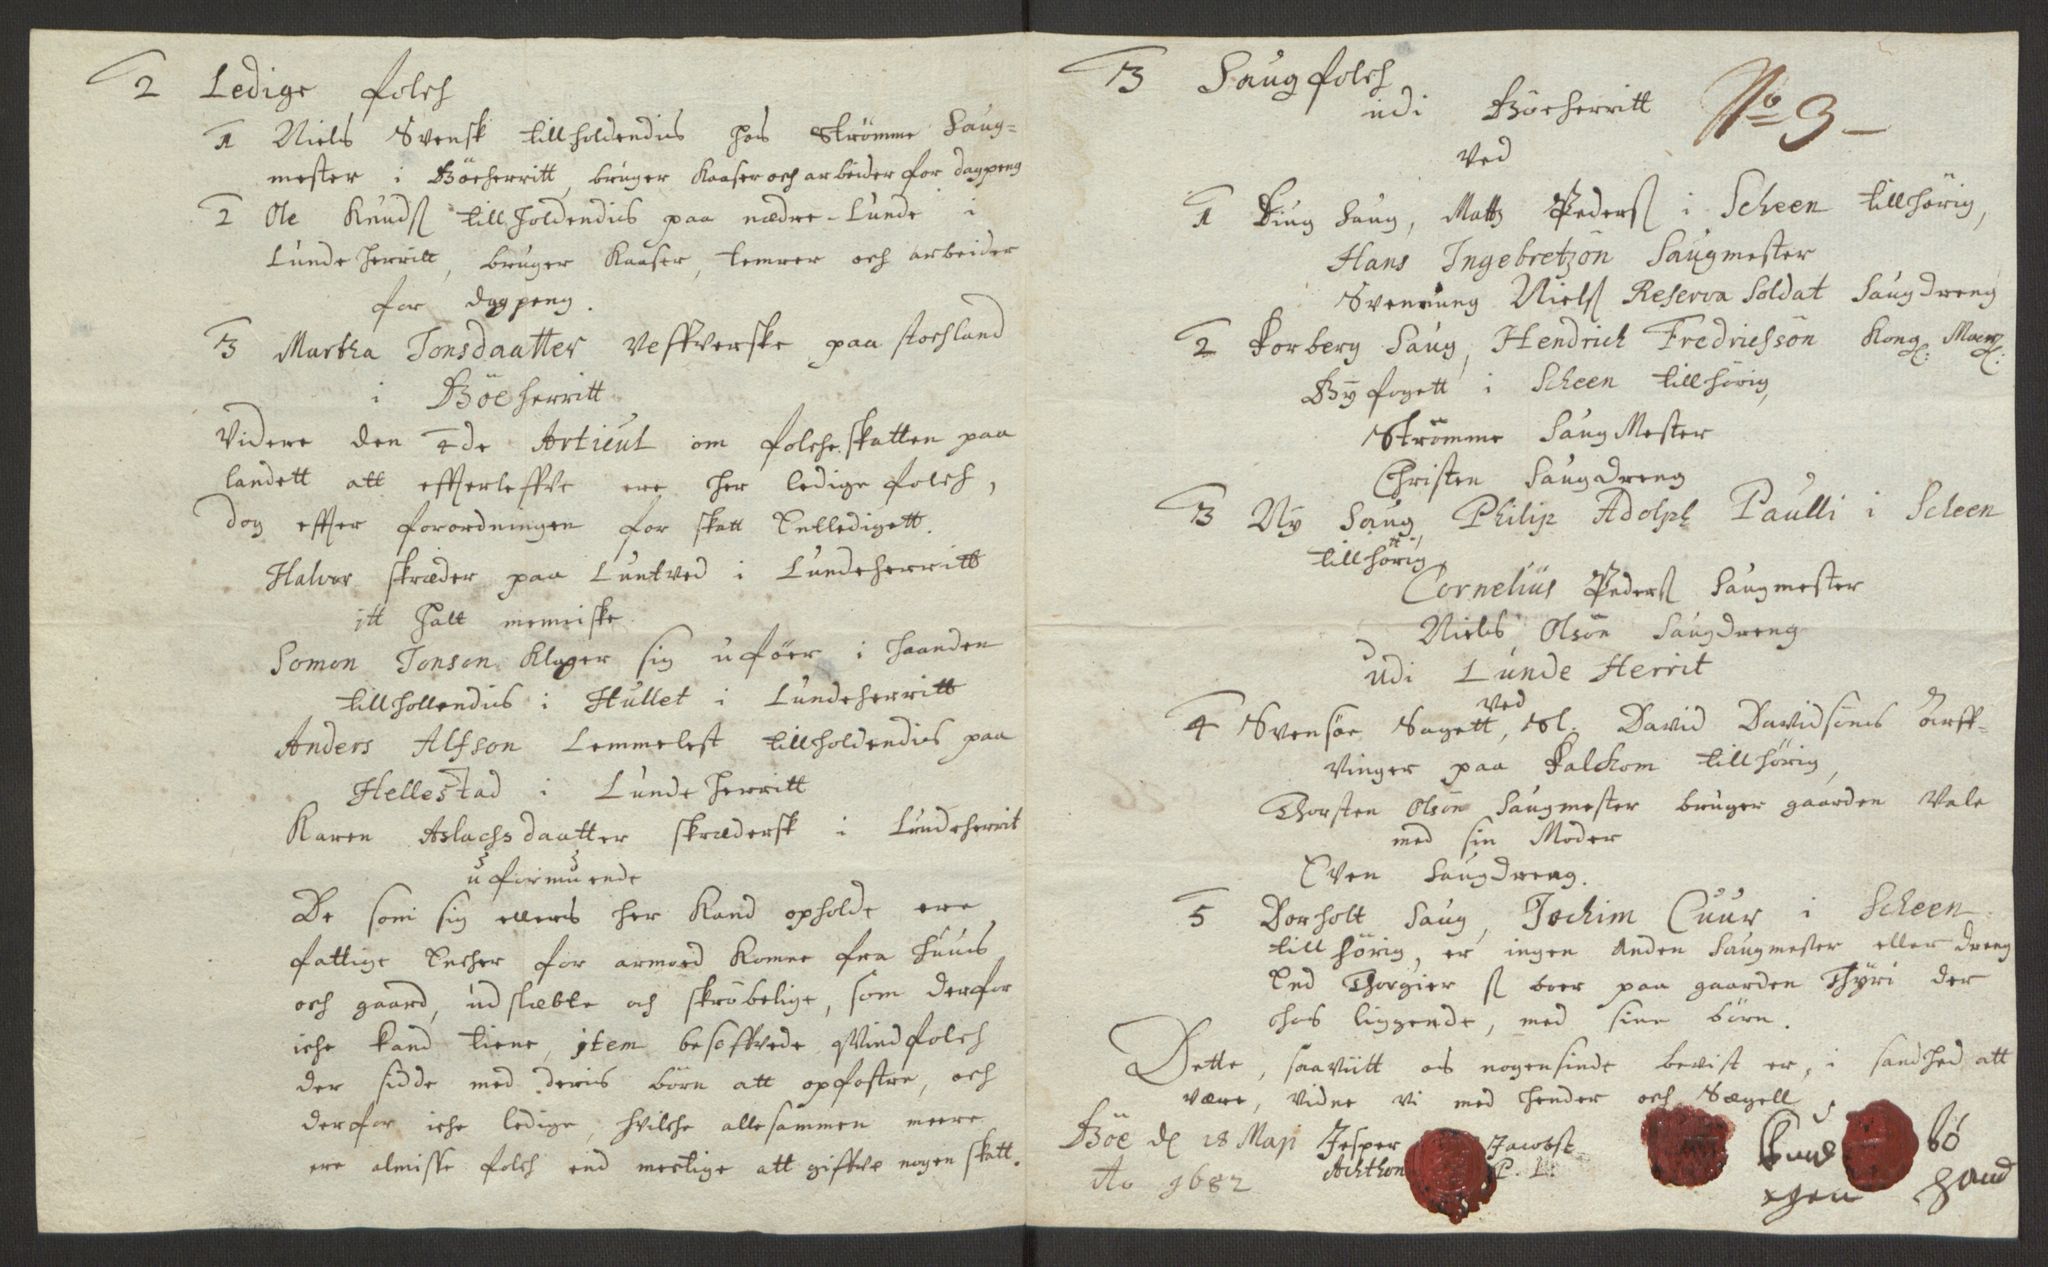 2 Ledige folch
1 Niels Svensk tillholdendis hos Strömme Saug-
mester i Böeherritt, bruger Kaaser och arbeider for dagpeng
2 Ole Knudß tillholdendis paa nædre-Lunde i
Lunde herritt, bruger Kaaser, temrer och arbeider
for dagpeng.
3 Martha Jonsdaatter Veffverske paa stochland
i Böeherritt
Videre den 4de Articul om folche skatten paa
landett att effterleffve ere her ledige folch,
dog effter forordningen for skatt entledigett.
Halvor skræder paa Luntved i Lundeherritt
itt halt menniske.
Somon Jonson klager sig uföer i haanden
tillhollendis i Hullet i Lundeherritt
Anders Alfson Lemmelest tillholdendis paa
Hellestad i Lunde herritt
Karen Aslachsdaatter skrædersk i Lundeherrit
uformuende
De som sig ellers her kand opholde ere
fattige encher for armoed komne fra huus
och gaard, udslæbte och skröbelige, som derfor
iche kand tiene, item besoffvede qvindfolch
der sidde med deris börn att opfostre, och
derfor iche ledige, hvilche allesammen meere
ere almisse folch end mectige att giffve nogen skatt.
3 Saugfolch
udi Böeherritt
No 3
Ved
1 Ting Saug, Mattz Pederß i Scheen tillhörig,
Hans Ingebretzön Saugmester
Svennung Nielß Reserva Soldat Saugdreng
2 Forberg Saug, Hendrich Fredrichsön Kong: Maÿ:
Byfogett i Scheen tillhörig,
Strömme Saug Mester
Christen Saugdreng
3 Ny Saug, Philip Adolph Paulli i Scheen
tillhörig,
Cornelius Pederß Saugmester
Niels Olsön Saugdreng
udi Lunde Herrit
ved
4 Svensöe Sagett, Sl. David Davidsöns Arff-
vinger paa Falchom tillhörig,
Thorsten Olsön Saugmester bruger gaarden Vale
med sin Moder
Even Saugdreng.
5 Dorholt Saug, Jochim Cuur i Scheen
tillhörig, er ingen anden Saugmester eller dreng
End Thorgier ß boer paa gaarden Thyri der
hos liggende, med sine börn.
Dette, saaviitt os nogensinde bevist er, i sandhed att
være, vidne vi med hender och Segell
Böe d 18 Maji
Ao 1682
Jesper Jacobsf
Achthon P. L.
Knud Bö
egen hand